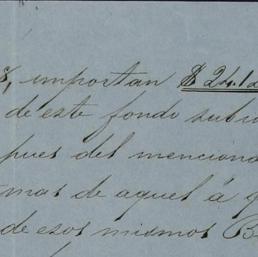 importan $ 24.12
de este fondo subv
pues del menciona
mas de aquel á q
de esos mismos B